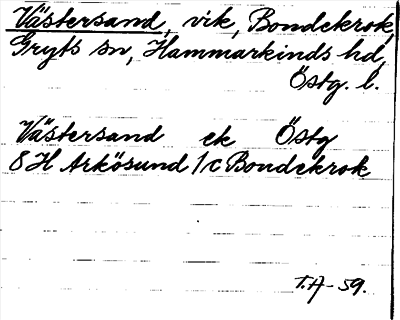 Västersand, vik, Bondekrok,
Gryts sn, Hammarkinds hd,
Östg. l.
Västersand ek Östg
8H Arkösund 1c Bondekrok
T.A -59.